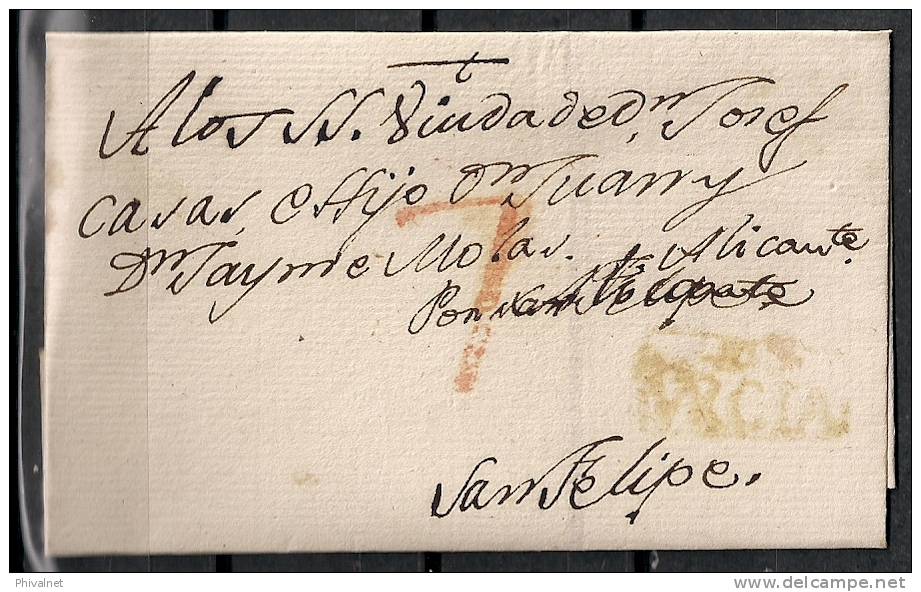 A los SS. Viuda de Dn Josef
Casas, e Hijo Dn Juan y
Dn Jayme Molas. Alicante
Por
7
San Felipe.
Phivalnet
www.delcampe.net